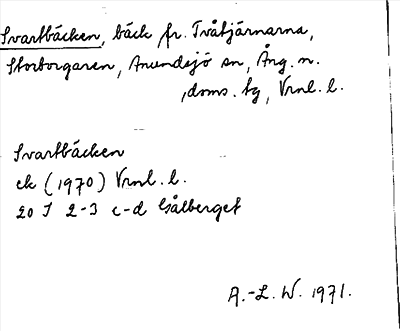 Svartbäcken, bäck fr. Tvåtjärnarna,
Storborgaren, Anundsjö sn, Ång. n.
, doms. tg, Vrnl. l.
Svartbäcken
ek (1970) Vrnl. l.
20 I 2-3 c-d Gålberget
A.-L. W. 1971.